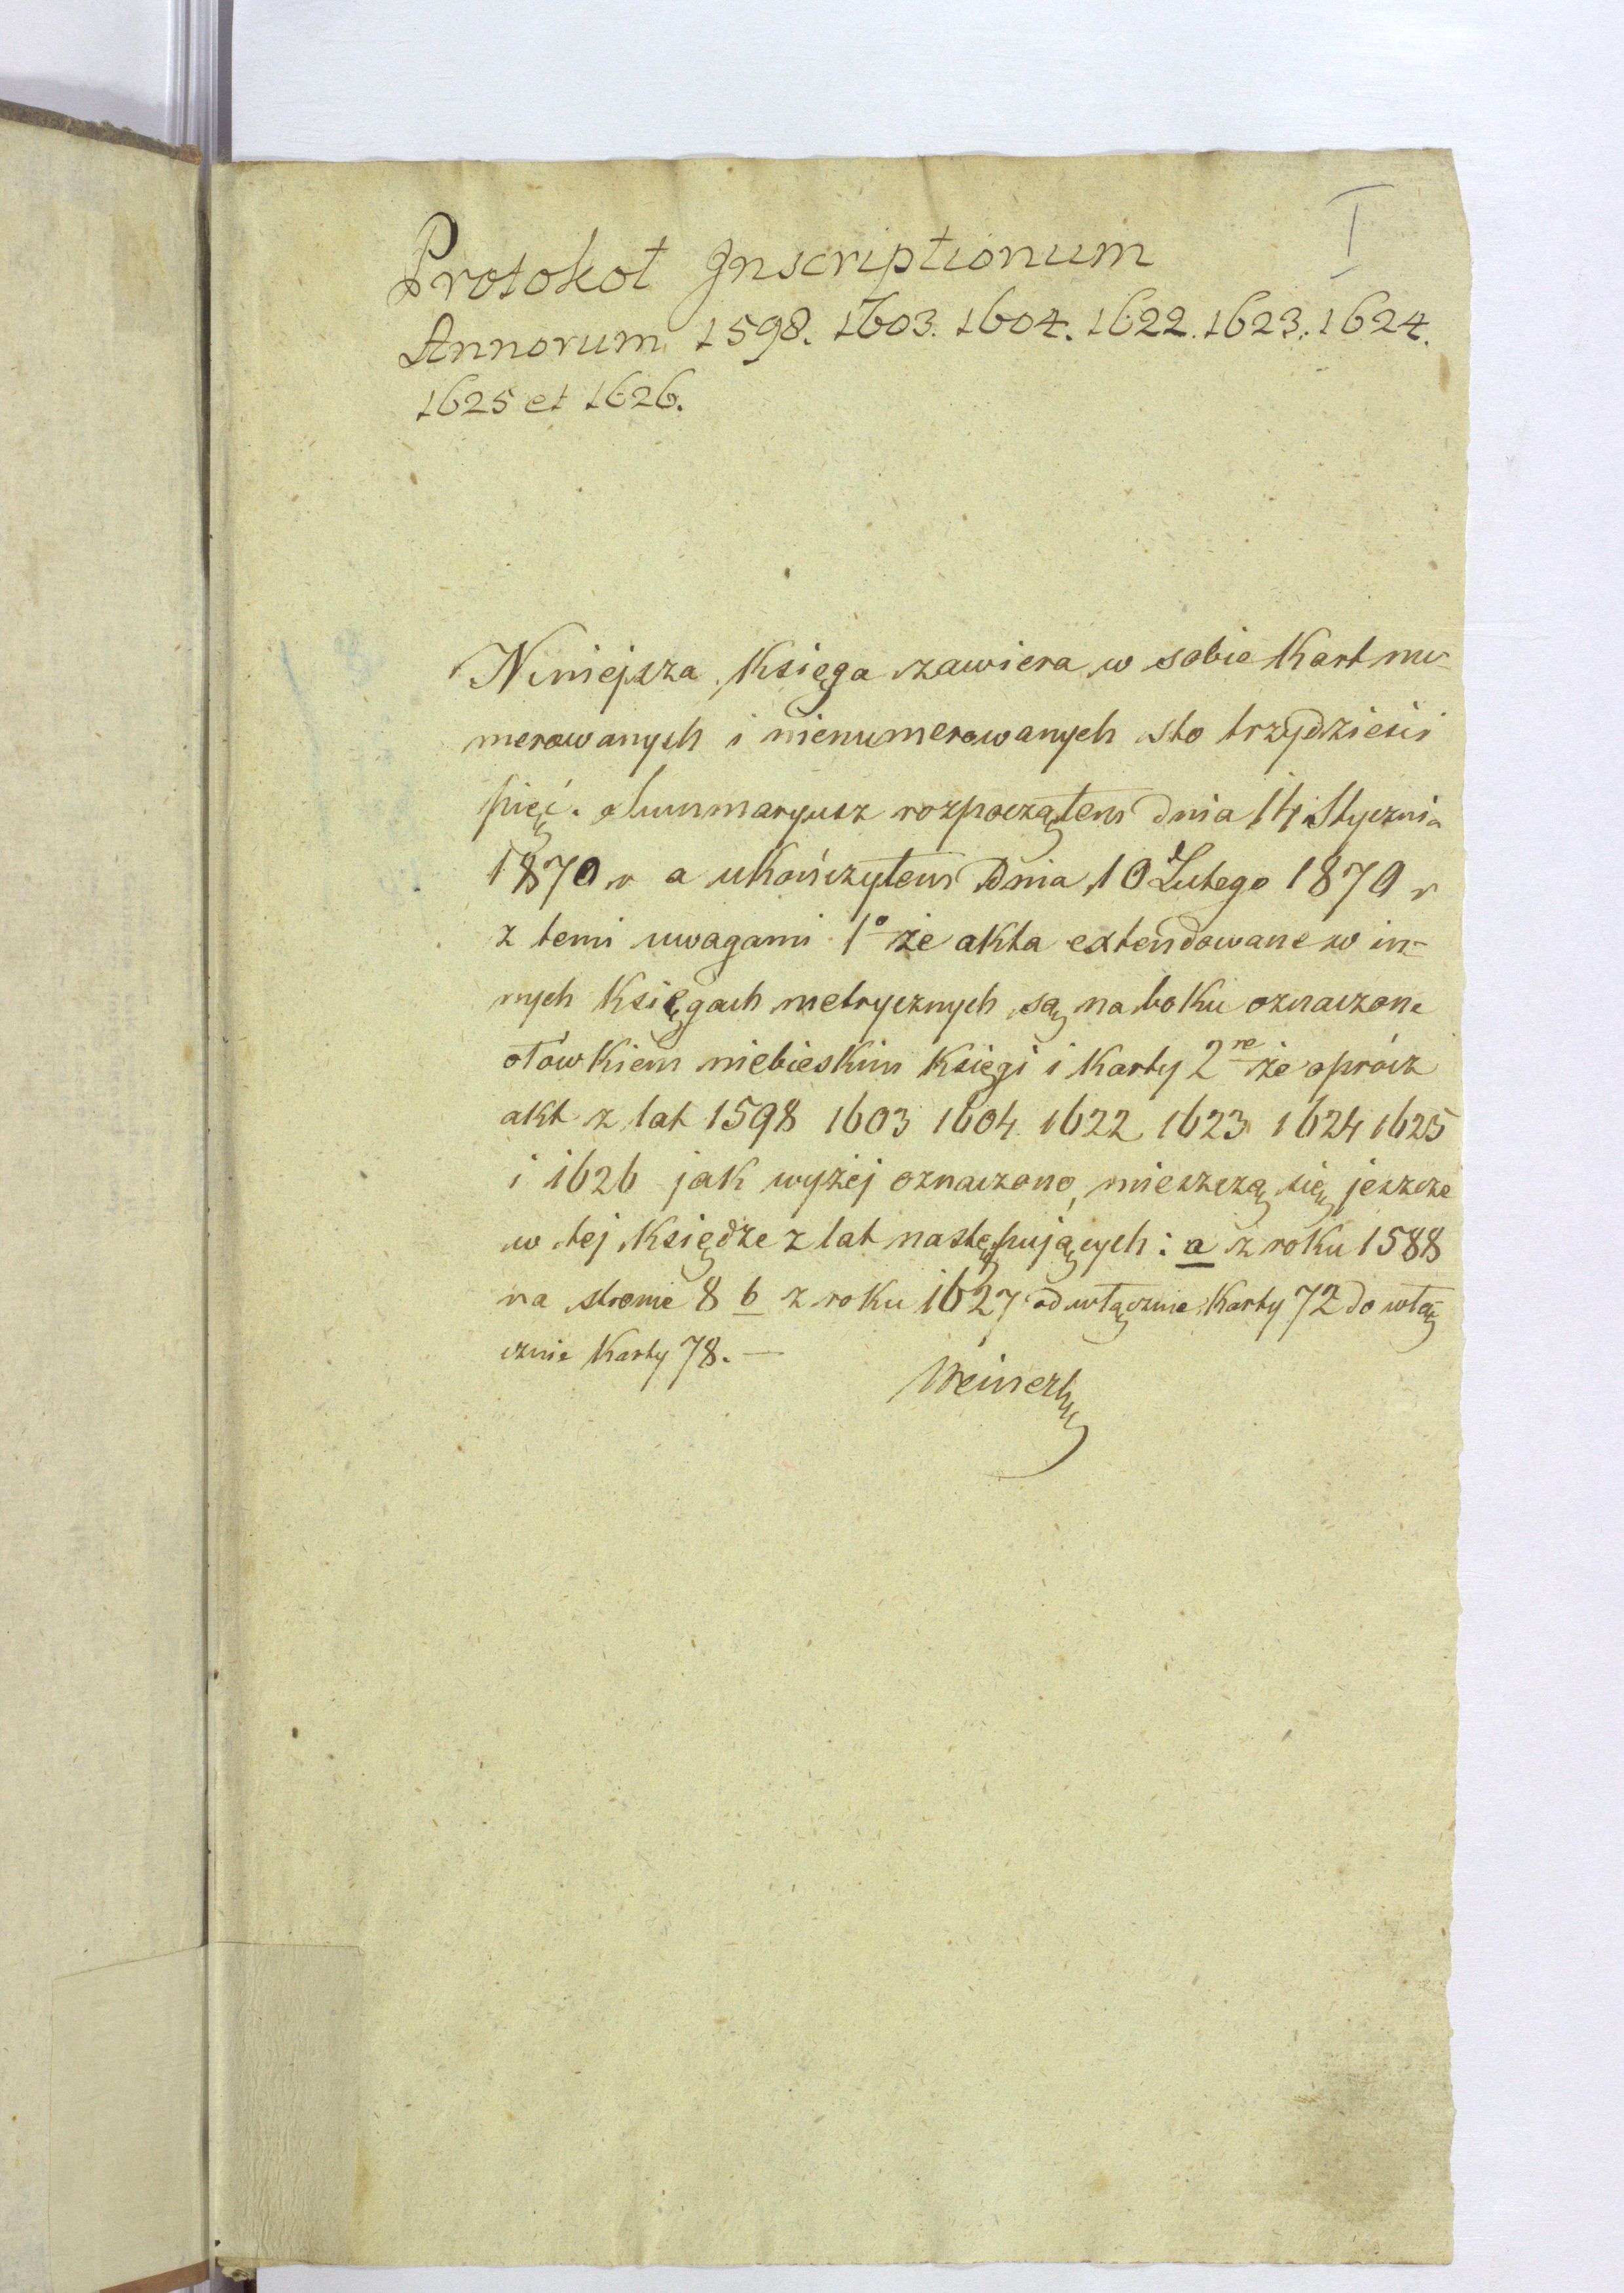 I
Protokoł Inscriptionum
Annorum 1598. 1603. 1604. 1622. 1623. 1624.
1625 et 1626.
Niniejsza Księga zawiera w sobie Kart nu-
merowanych i nienumerowanych sto trzydzieści
pięć. Summaryusz rozpocząłem dnia 14 Stycznia
1870 r a ukończyłem dnia 10 Lutego 1870 r
z temi uwagami 1o że akta extendowane w in-
nych Księgach metrycznych są na boku oznaczone
ołówkiem niebieskim Księgi i Karty 2re że oprócz
akt z lat 1598 1603 1604 1622 1623 1624 1625
i 1626 jak wyżej oznaczono, mieszczą się jeszcze
w tej Księdze z lat następujących: a z roku 1588
na stronie 8 b z roku 1627 od włącznie Karty 72 do włą
cznie Karty 78. —
Weinert